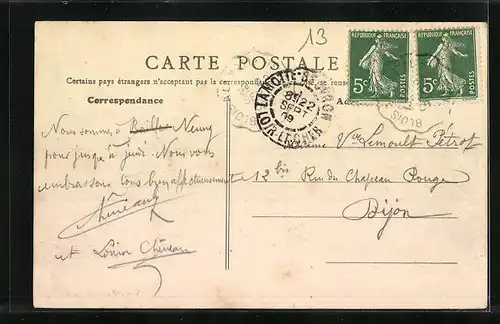 13
CARTE POSTALE
RÉPUBLIQUE FRANÇAISE
5c
POSTES
RÉPUBLIQUE FRANÇAISE
5c
POSTES
Certains pays étrangers n'acceptent pas la correspondance
Correspondance
LAMOTTE-BEUVRON
22
SEPT
09
LOIR-ET-CHER
BLOIS
BLOIS
Nous sommes à Neuvy
pour jusqu'à jeudi. Nous vous
embrassons tous bien affectueusement
et Louise Chéreau
Madame Vve Lemoult Petrot
13 bis Rue du Chapeau Rouge
Dijon